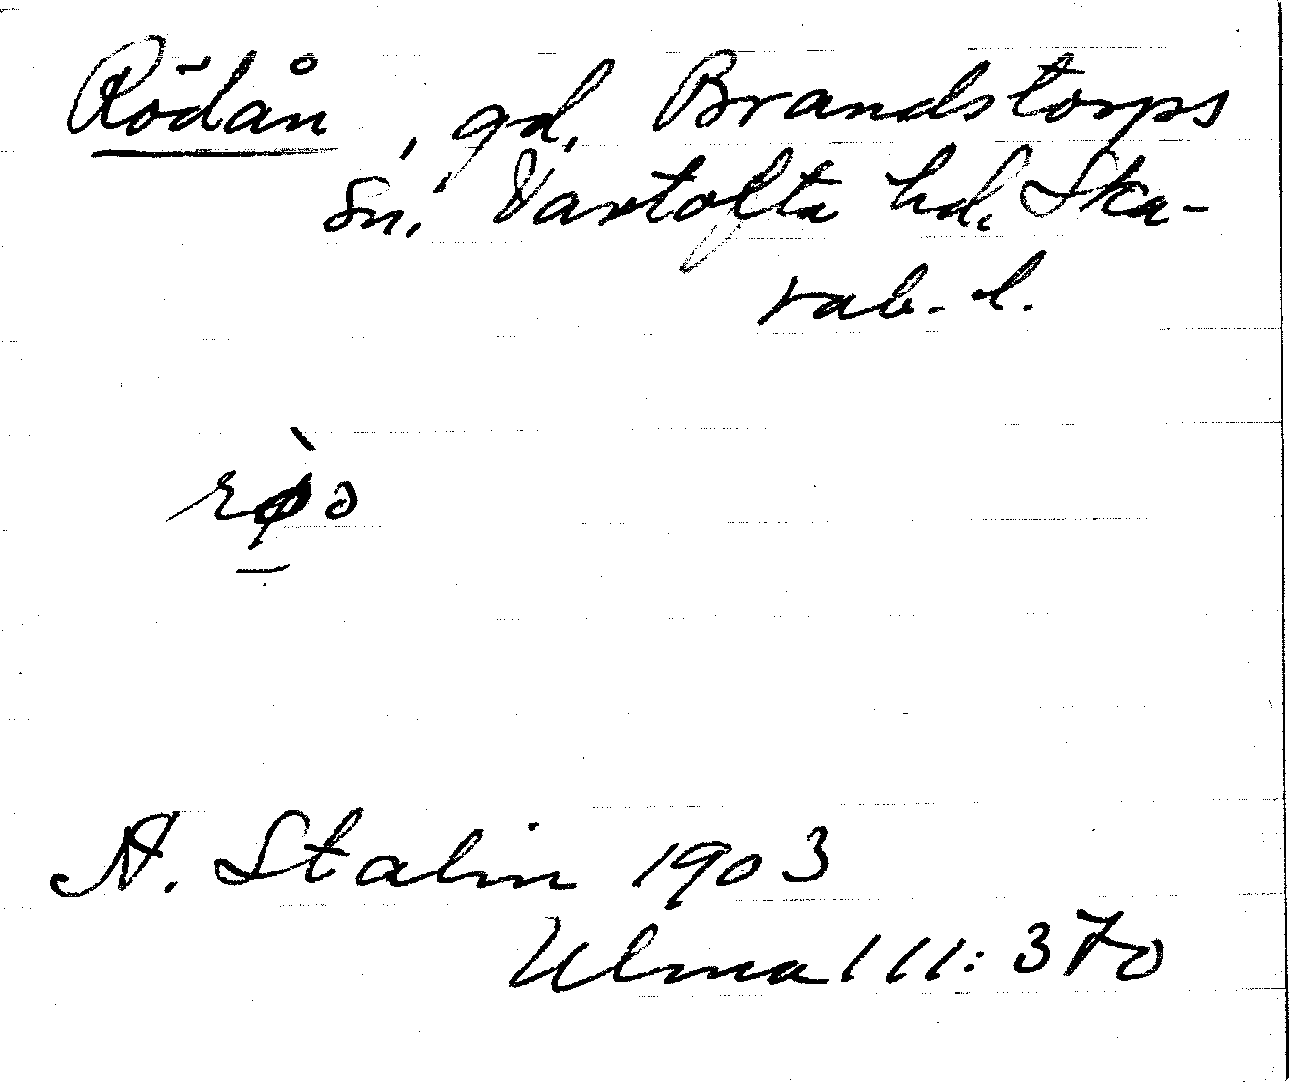 Rödån, gd. Brandstorps
sn. Vartofta hd. Ska-
rab. l.
A. Stalin 1903
Ulma 111:370